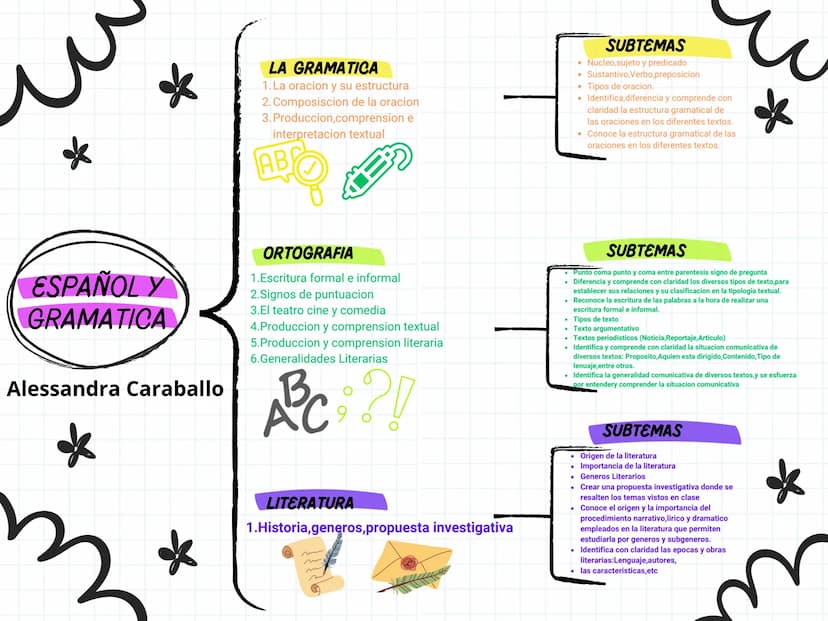 ESPAÑOL Y
GRAMATICA
Alessandra Caraballo
LA GRAMATICA
1. La oracion y su estructura
2. Composiscion de la oracion
3. Produccion,comprension e
interpretacion textual
ABC
SUBTEMAS
Nucleo,sujeto y predicado
Sustantivo,Verbo,preposicion
Tipos de oracion.
Identifica,diferencia y comprende con
claridad la estructura gramatical de
las oraciones en los diferentes textos.
Conoce la estructura gramatical de las
oraciones en los diferentes textos.
ORTOGRAFIA
1.Escritura formal e informal
2.Signos de puntuacion
3.El teatro cine y comedia
4.Produccion y comprension textual
5.Produccion y comprension literaria
6.Generalidades Literarias
ABC ; : ? !
SUBTEMAS
Punto coma punto y coma entre parentesis signo de pregunta
Diferencia y comprende con claridad los diversos tipos de texto,para
establecer sus relaciones y su clasificacion en la tipologia textual.
Reconoce la escritura de las palabras a la hora de realizar una
escritura formal e informal.
Tipos de texto
Texto argumentativo
Textos periodisticos (Noticia,Reportaje,Articulo)
Identifica y comprende con claridad la situacion comunicativa de
diversos textos: Proposito,Aquien esta dirigido,Contenido,Tipo de
lenuaje,entre otros.
Identifica la generalidad comunicativa de diversos textos,y se esfuerza
por entendery comprender la situacion comunicativa
LITERATURA
1.Historia,generos,propuesta investigativa
SUBTEMAS
Origen de la literatura
Importancia de la literatura
Generos Literarios
Crear una propuesta investigativa donde se
resalten los temas vistos en clase
Conoce el origen y la importancia del
procedimiento narrativo,lirico y dramatico
empleados en la literatura que permiten
estudiarla por generos y subgeneros.
Identifica con claridad las epocas y obras
literarias:Lenguaje,autores,
las caracteristicas,etc